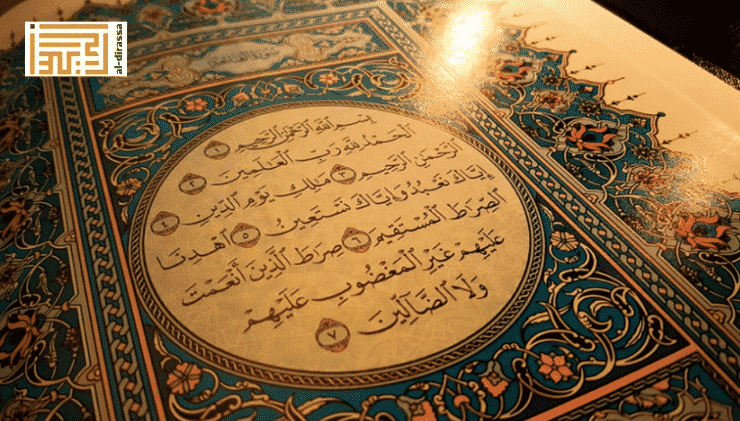 al-dirassa
بِسْمِ ٱللَّهِ ٱلرَّحْمَٰنِ ٱلرَّحِيمِ ١
ٱلْحَمْدُ لِلَّهِ رَبِّ ٱلْعَٰلَمِينَ ٢
ٱلرَّحْمَٰنِ ٱلرَّحِيمِ ٣ مَٰلِكِ يَوْمِ ٱلدِّينِ ٤
إِيَّاكَ نَعْبُدُ وَإِيَّاكَ نَسْتَعِينُ ٥ ٱهْدِنَا
ٱلصِّرَٰطَ ٱلْمُسْتَقِيمَ ٦ صِرَٰطَ ٱلَّذِينَ أَنْعَمْتَ
عَلَيْهِمْ غَيْرِ ٱلْمَغْضُوبِ عَلَيْهِمْ
وَلَا ٱلضَّآلِّينَ ٧